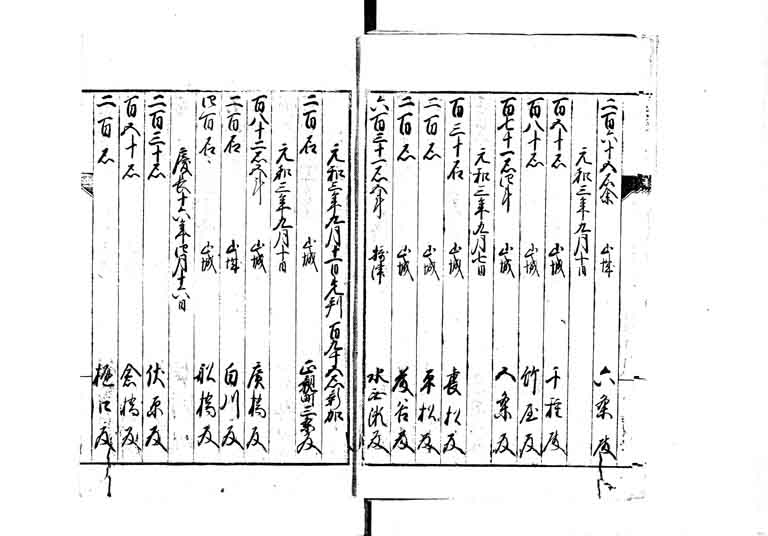 二百六十五石余 山城 六条殿
元和三年九月十日
百五十石 山城 千種殿
百八十石 山城 竹屋殿
百七十一石四斗 山城 久我殿
元和三年九月七日
百三十石 山城 裏松殿
二百石 山城 平松殿
二百石 山城 藤谷殿
六百三十一石八斗 摂津 水無瀬殿
元和三年九月十一日先判 百九十五石新加
二百石 山城 正親町三条殿
元和三年九月十日
百八十二石八斗 山城 廣橋殿
二百石 山城 白川殿
四百石 山城 舟橋殿
慶長十六年四月十六日
二百三十石 伏原殿
百五十石 倉橋殿
二百石 樋口殿